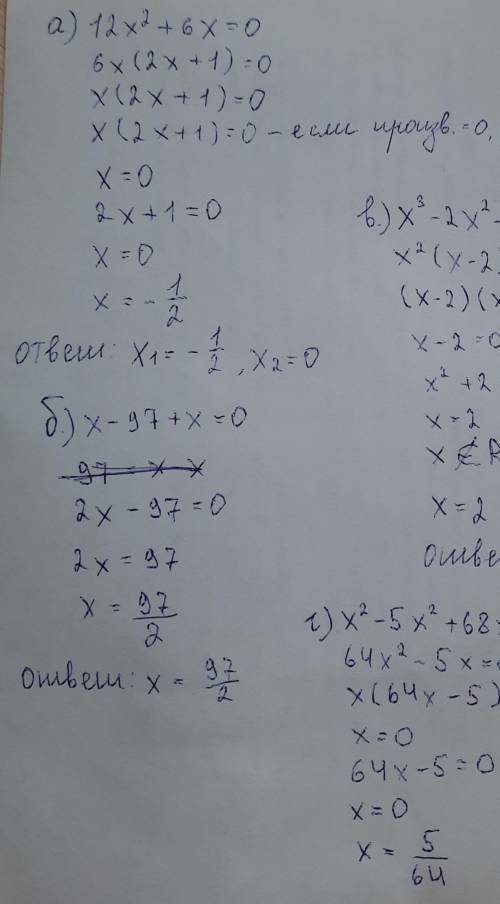 а) 12x² + 6x = 0
6x(2x + 1) = 0
x(2x + 1) = 0
x(2x + 1) = 0 – если произв. = 0,
x = 0
2x + 1 = 0
x = 0
x = - 1/2
ответ: x₁ = - 1/2, x₂ = 0
б.) x - 97 + x = 0
97 = x x
2x - 97 = 0
2x = 97
x = 97/2
ответ: x = 97/2
в.) x³ - 2x² -
x²(x - 2)
(x - 2)(x
x - 2 = 0
x² + 2
x = 2
x ∉ R
x = 2
отве
г) x² - 5x² + 68
64x² - 5x =
x(64x - 5)
x = 0
64x - 5 = 0
x = 0
x = 5/64